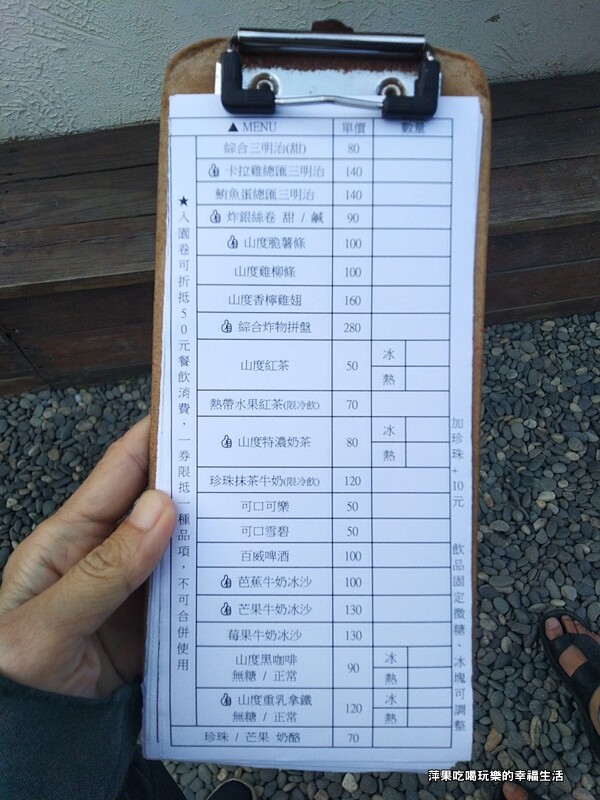 ▲ MENU 單價 數量
綜合三明治(甜) 80
卡拉雞總匯三明治 140
鮪魚蛋總匯三明治 140
炸銀絲卷 甜 / 鹹 90
山度脆薯條 100
山度雞柳條 100
山度香檸雞翅 160
綜合炸物拼盤 280
山度紅茶 50 冰
熱
熱帶水果紅茶(限冷飲) 70
山度特濃奶茶 80 冰
熱
珍珠抹茶牛奶(限冷飲) 120
可口可樂 50
可口雪碧 50
百威啤酒 100
芭蕉牛奶冰沙 100
芒果牛奶冰沙 130
莓果牛奶冰沙 130
山度黑咖啡 90 冰
無糖 / 正常 熱
山度重乳拿鐵 120 冰
無糖 / 正常 熱
珍珠 / 芒果 奶酪 70
★入園卷可折抵50元餐飲消費，一券限抵一種品項，不可合併使用
加珍珠+10元 飲品固定微糖、冰塊可調整
萍果吃喝玩樂的幸福生活